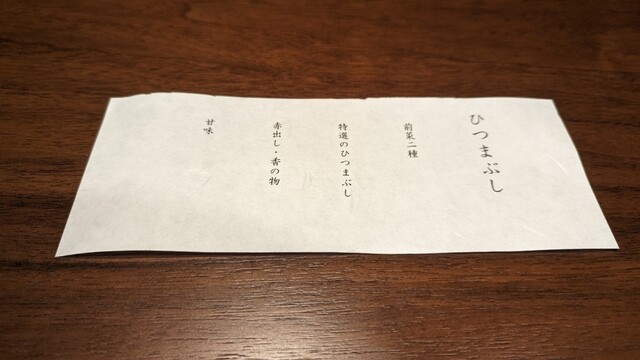 ひつまぶし
前菜二種
特選のひつまぶし
赤出し・香の物
甘味